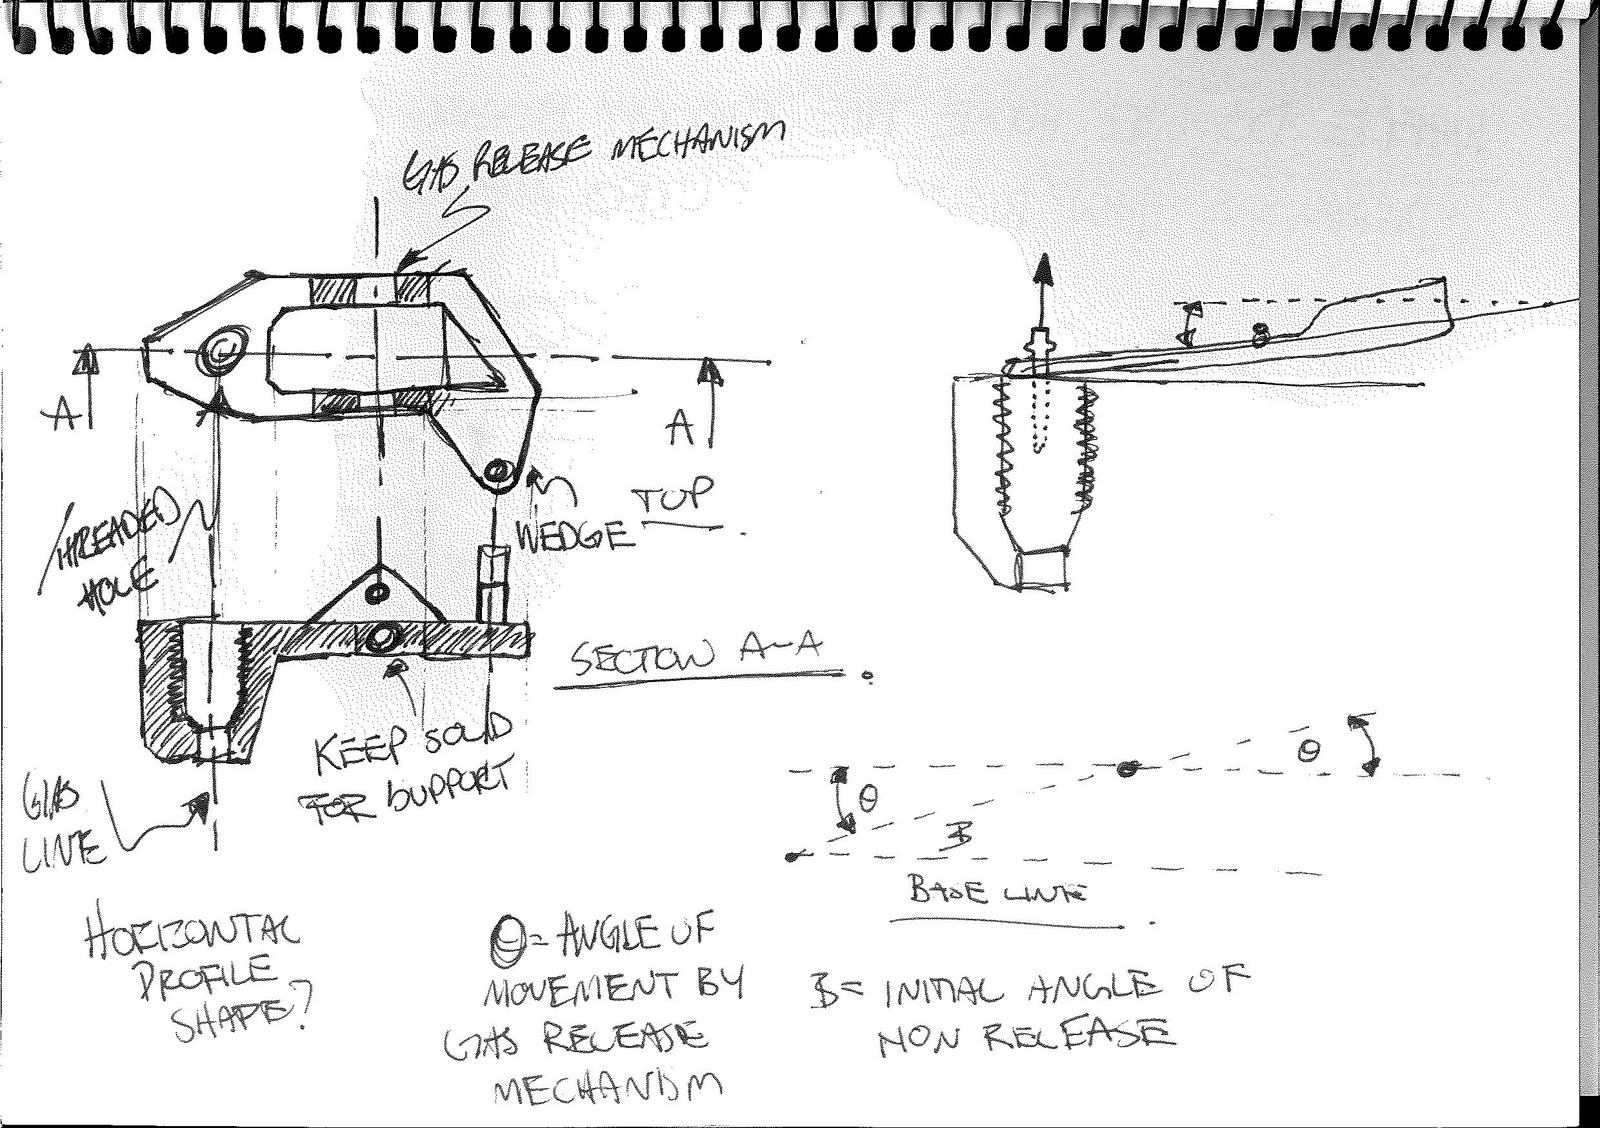 GAS RELEASE MECHANISM
A
A
THREADED
HOLE
WEDGE
TOP
θ
SECTION A-A
KEEP SOLID
FOR SUPPORT
GAS
LINE
θ
θ
B
BASE LINE
HORIZONTAL
PROFILE
SHAPE?
θ = ANGLE OF
MOVEMENT BY
GAS RELEASE
MECHANISM
B = INITIAL ANGLE OF
NON RELEASE